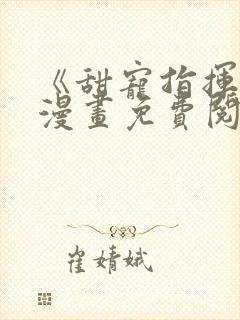 《甜寵指揮
漫畫免費閱
崔婧娥